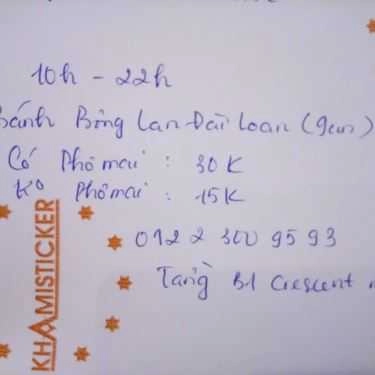 10h - 22h
Bánh Bông Lan Đài Loan (gun)
Có Phômai : 30K
Kº Phômai : 15K
0122 300 9593
Tầng B1 Crescent
KHAMISTICKER